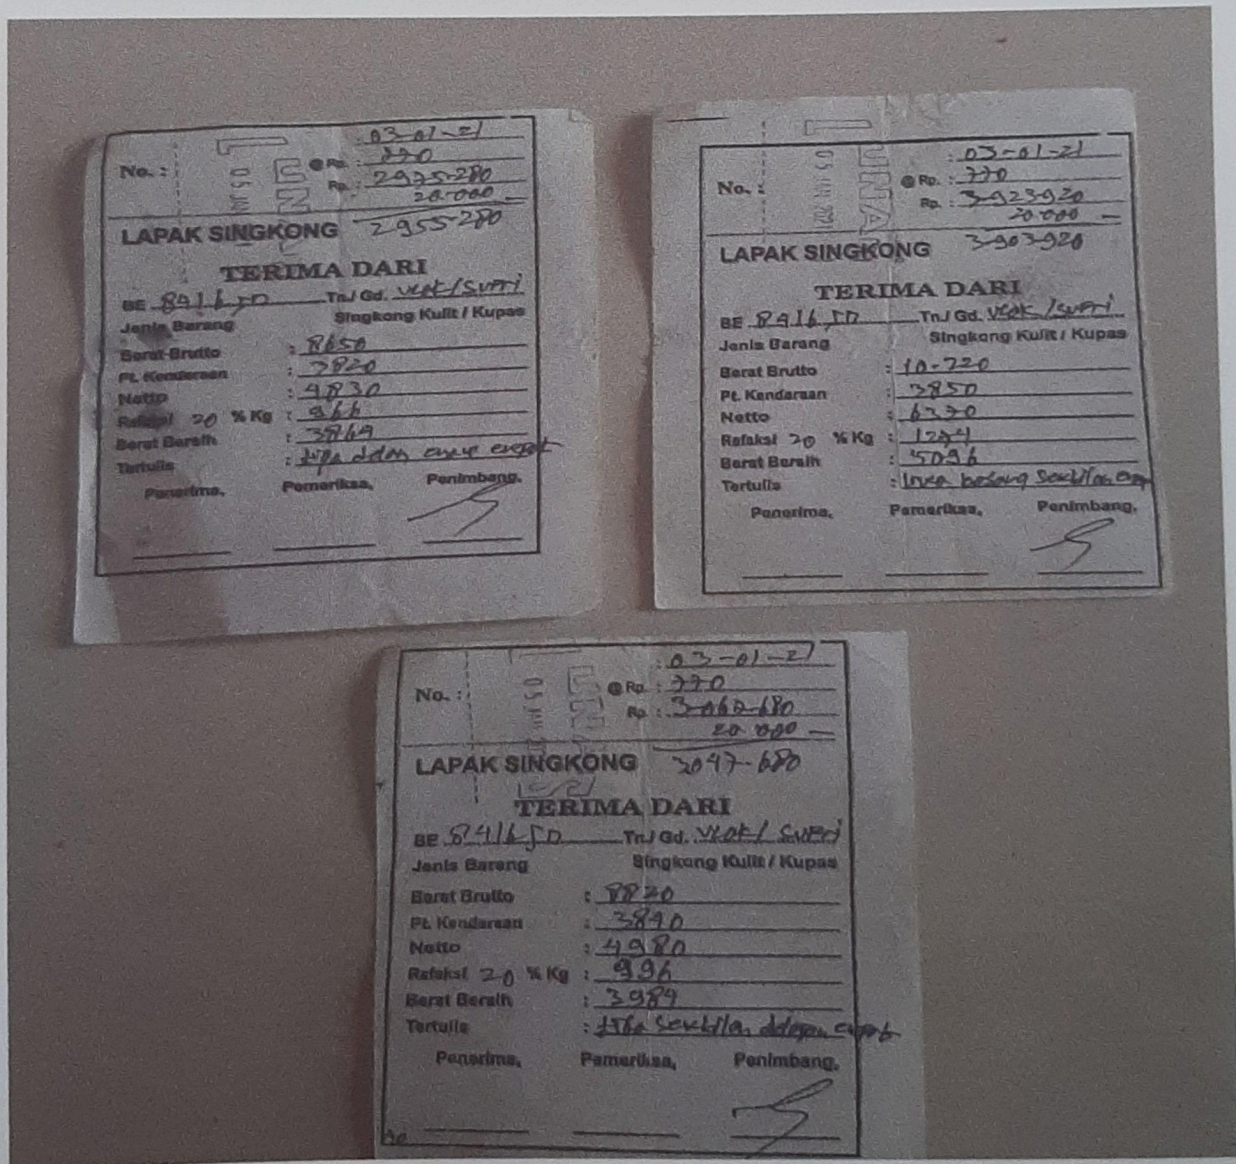 : 03-01-21
No. : @ Rp. : 770
Rp. : 2975-280
20.000 —
LAPAK SINGKONG 2955-280
TERIMA DARI
BE 8416 JD Tn./ Gd. /Supri
Jenis Barang Singkong Kulit / Kupas
Berat Brutto : 8650
Pt. Kendaraan : 3820
Netto : 4830
Rafaksi 20 % Kg : 966
Berat Bersih : 3864
Tertulis : tiga delan enam empat
Penerima, Pemeriksa, Penimbang,
LUNAS
: 03-01-21
No. : @ Rp. : 770
Rp. : 3-923-920
20.000 —
LAPAK SINGKONG 3-903-920
TERIMA DARI
BE 8416 JD Tn./ Gd. /Supri
Jenis Barang Singkong Kulit / Kupas
Berat Brutto : 10-220
Pt. Kendaraan : 3850
Netto : 6370
Rafaksi 20 % Kg : 1274
Berat Bersih : 5096
Tertulis : Lima kosong Sembilan
Penerima, Pemeriksa, Penimbang,
LUNAS
: 03-01-21
No. : @ Rp. : 770
Rp. :
20.000 —
LAPAK SINGKONG 3047-680
TERIMA DARI
BE 8416 JD Tn./ Gd. / Supri
Jenis Barang Singkong Kulit / Kupas
Berat Brutto : 8820
Pt. Kendaraan : 3840
Netto : 4980
Rafaksi 20 % Kg : 996
Berat Bersih : 3984
Tertulis : tiga Sembilan delapan empat
Penerima, Pemeriksa, Penimbang,
LUNAS